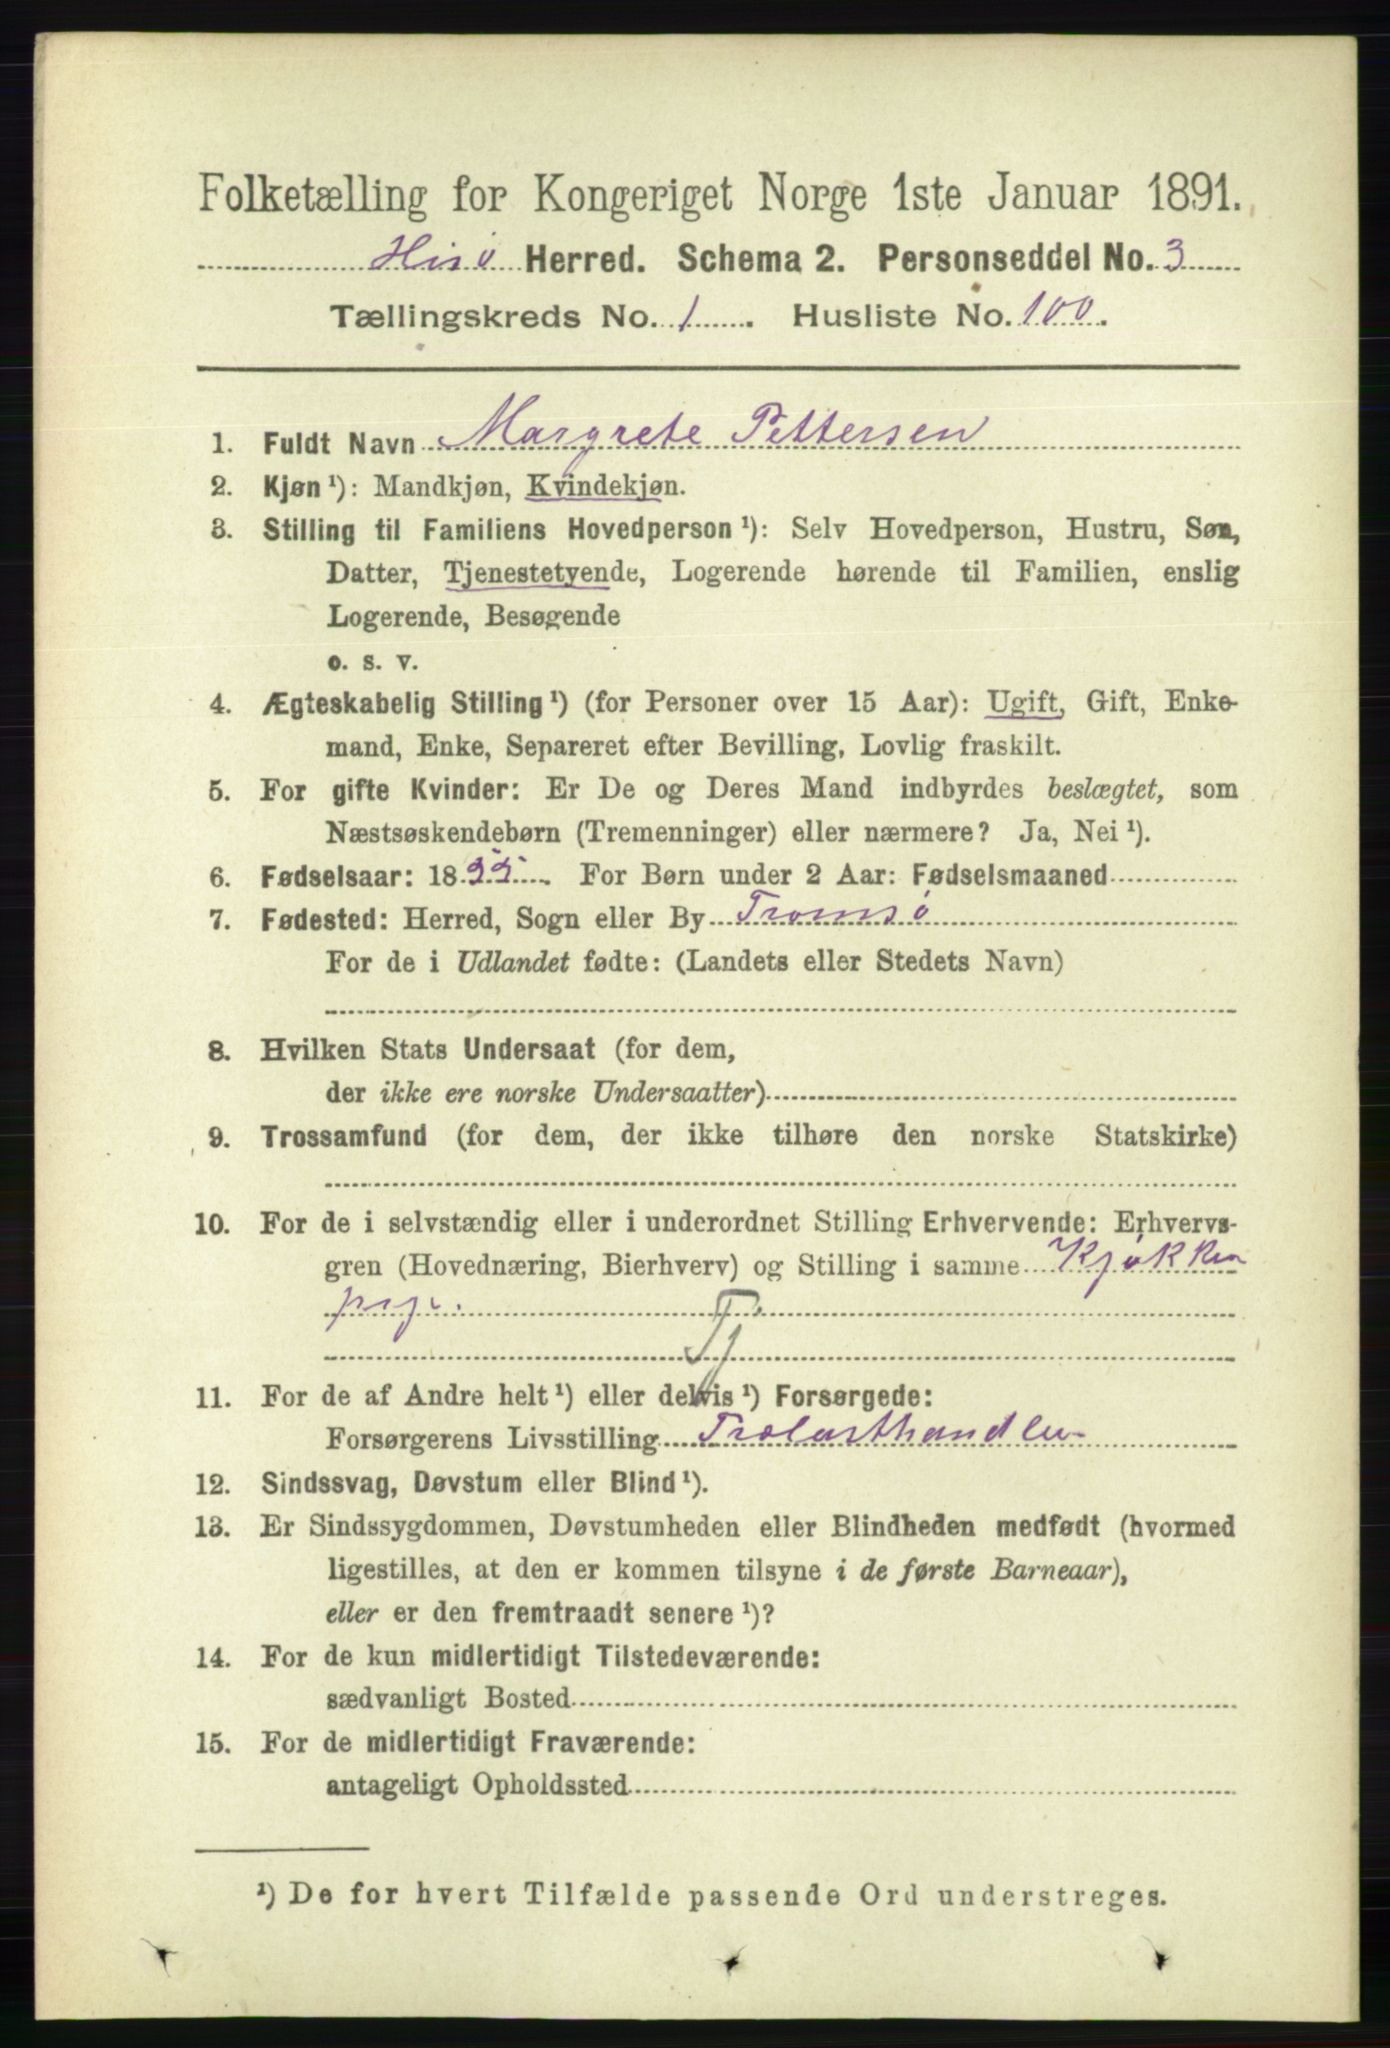 Folketælling for Kongeriget Norge 1ste Januar 1891.
Hisø Herred. Schema 2. Personseddel No. 3
Tællingskreds No. 1. Husliste No. 100.
1. Fuldt Navn Margrete Pettersen
2. Kjøn ¹): Mandkjøn, Kvindekjøn.
3. Stilling til Familiens Hovedperson ¹): Selv Hovedperson, Hustru, Søn,
Datter, Tjenestetyende, Logerende hørende til Familien, enslig
Logerende, Besøgende
o. s. v.
4. Ægteskabelig Stilling ¹) (for Personer over 15 Aar): Ugift, Gift, Enke-
mand, Enke, Separeret efter Bevilling, Lovlig fraskilt.
5. For gifte Kvinder: Er De og Deres Mand indbyrdes beslægtet, som
Næstsøskendebørn (Tremenninger) eller nærmere? Ja, Nei ¹).
6. Fødselsaar: 1855. For Børn under 2 Aar: Fødselsmaaned
7. Fødested: Herred, Sogn eller By Tromsø
For de i Udlandet fødte: (Landets eller Stedets Navn)
8. Hvilken Stats Undersaat (for dem,
der ikke ere norske Undersaatter)
9. Trossamfund (for dem, der ikke tilhøre den norske Statskirke)
10. For de i selvstændig eller i underordnet Stilling Erhvervende: Erhvervs-
gren (Hovednæring, Bierhverv) og Stilling i samme Kjøkken
pige.
Tj
11. For de af Andre helt ¹) eller delvis ¹) Forsørgede:
Forsørgerens Livsstilling Trælasthandler
12. Sindssvag, Døvstum eller Blind ¹).
13. Er Sindssygdommen, Døvstumheden eller Blindheden medfødt (hvormed
ligestilles, at den er kommen tilsyne i de første Barneaar),
eller er den fremtraadt senere ¹)?
14. For de kun midlertidigt Tilstedeværende:
sædvanligt Bosted
15. For de midlertidigt Fraværende:
antageligt Opholdssted
¹) De for hvert Tilfælde passende Ord understreges.